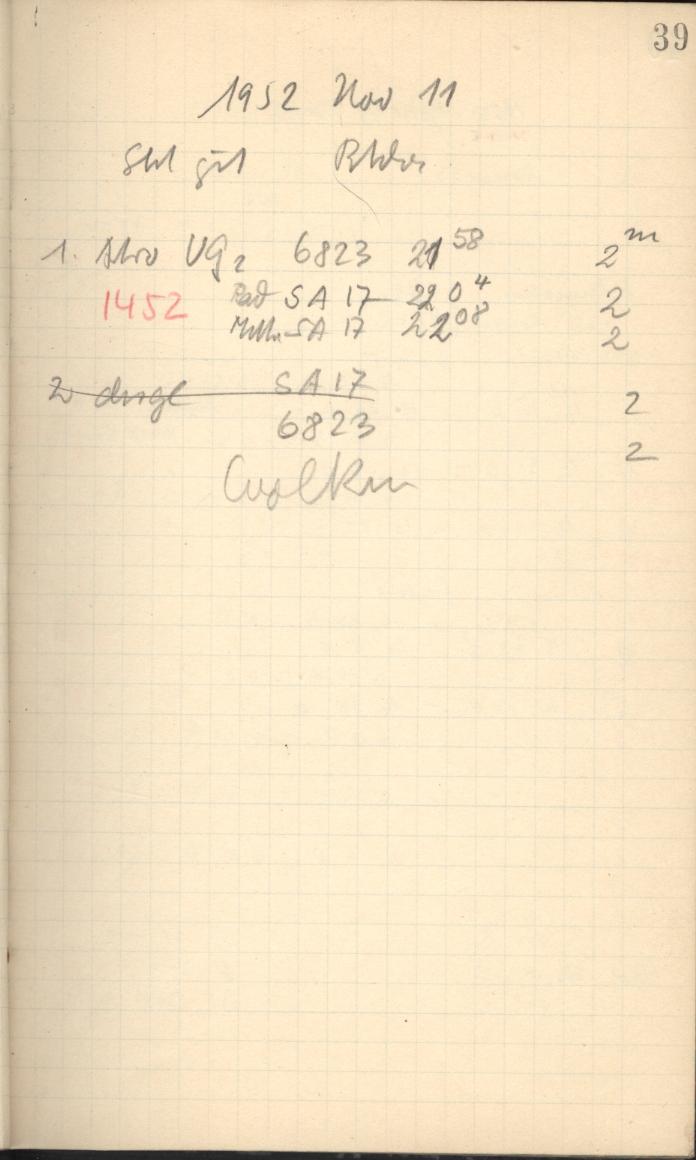 39
1952 Nov 11
gut
1. Astro VG2 6823 21 58 2m
1452 SA 17 22 04 2
SA 17 22 08 2
2 dsgl SA 17 2
6823 2
Wolken